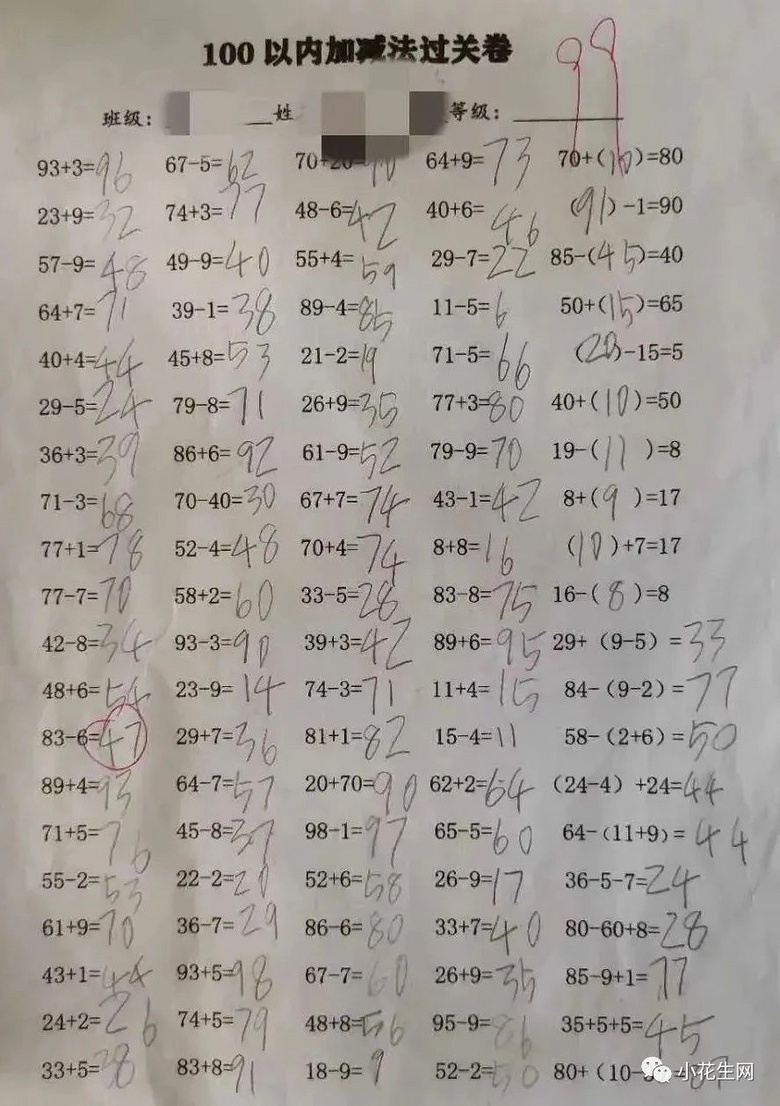 100以内加减法过关卷
99
班级: 姓 等级:
93+3=96 67-5=62 70+20=90 64+9=73 70+(10)=80
23+9=32 74+3=77 48-6=42 40+6=46 (91)-1=90
57-9=48 49-9=40 55+4=59 29-7=22 85-(45)=40
64+7=71 39-1=38 89-4=85 11-5=6 50+(15)=65
40+4=44 45+8=53 21-2=19 71-5=66 (20)-15=5
29-5=24 79-8=71 26+9=35 77+3=80 40+(10)=50
36+3=39 86+6=92 61-9=52 79-9=70 19-(11)=8
71-3=68 70-40=30 67+7=74 43-1=42 8+(9)=17
77+1=78 52-4=48 70+4=74 8+8=16 (10)+7=17
77-7=70 58+2=60 33-5=28 83-8=75 16-(8)=8
42-8=34 93-3=90 39+3=42 89+6=95 29+(9-5)=33
48+6=54 23-9=14 74-3=71 11+4=15 84-(9-2)=77
83-6=47 29+7=36 81+1=82 15-4=11 58-(2+6)=50
89+4=93 64-7=57 20+70=90 62+2=64 (24-4)+24=44
71+5=76 45-8=37 98-1=97 65-5=60 64-(11+9)=44
55-2=53 22-2=20 52+6=58 26-9=17 36-5-7=24
61+9=70 36-7=29 86-6=80 33+7=40 80-60+8=28
43+1=44 93+5=98 67-7=60 26+9=35 85-9+1=77
24+2=26 74+5=79 48+8=56 95-9=86 35+5+5=45
33+5=38 83+8=91 18-9=9 52-2=50 80+(10-
小花生网